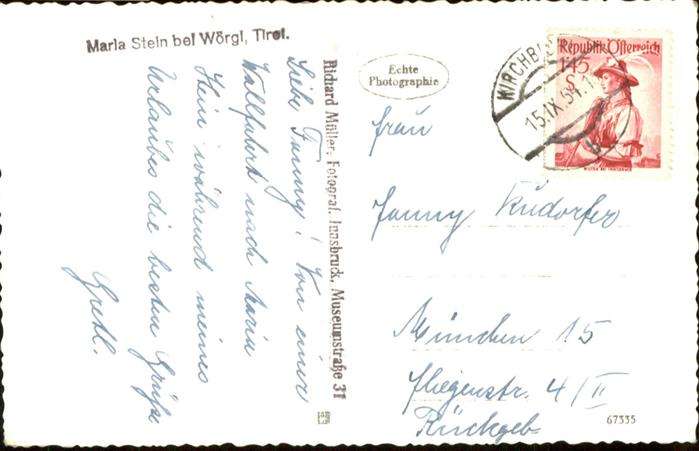 Maria Stein bei Wörgl, Tirol.
Liebe Fanny! Von einer
Wallfahrt nach Maria
Stein während meines
Urlaubes die besten Grüße
Gretl.
Richard Müller, Fotograf, Innsbruck, Museumstraße 31
Echte
Photographie
KIRCHBI
15.IX.51.1
b
Republik Österreich
1.45
S
Frau
Fanny Rudorfer
München 15
Fliegenstr. 4/II
Rückgeb.
67335